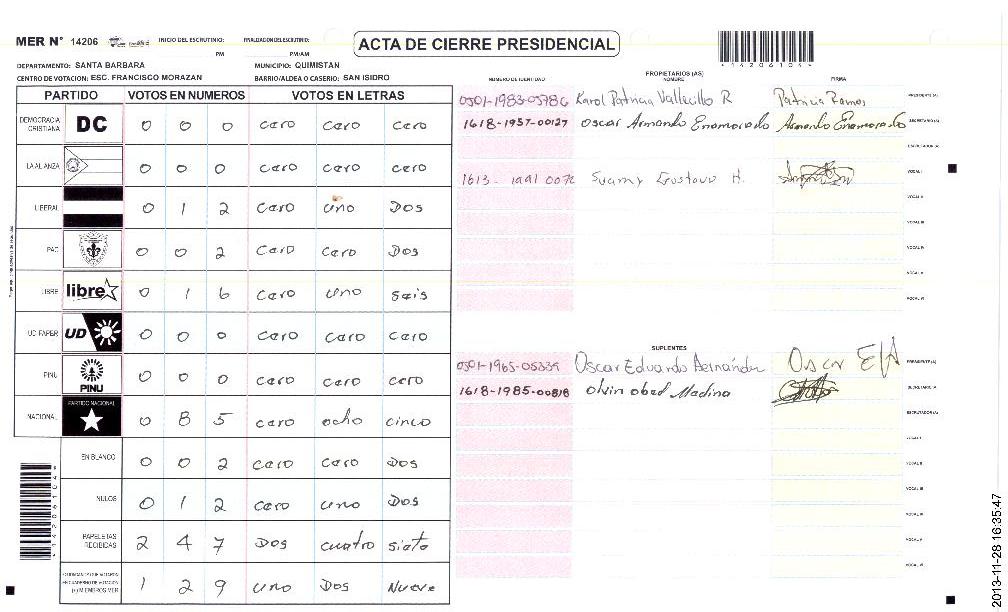 MER N° 14206 INICIO DEL ESCRUTINIO: PM FINALIZACION ESCRUTINIO: PM/AM
ACTA DE CIERRE PRESIDENCIAL
*14206104*
DEPARTAMENTO: SANTA BARBARA MUNICIPIO: QUIMISTAN
CENTRO DE VOTACION: ESC. FRANCISCO MORAZAN BARRIO/ALDEA O CASERIO: SAN ISIDRO
PARTIDO VOTOS EN NUMEROS VOTOS EN LETRAS
DEMOCRACIA CRISTIANA DC 0 0 0 caro caro caro
LA ALIANZA 0 0 0 caro caro caro
LIBERAL 0 1 2 caro uno Dos
PAC 0 0 2 caro caro Dos
LIBRE libre 0 1 6 caro uno sais
UD FAPER UD 0 0 0 caro caro caro
PINU PINU 0 0 0 caro caro caro
NACIONAL PARTIDO NACIONAL 0 8 5 caro ocho cinco
EN BLANCO 0 0 2 caro caro Dos
NULOS 0 1 2 caro uno Dos
PAPELETAS RECIBIDAS 2 4 7 Dos cuatro siete
CIUDADANOS QUE VOTARON EN CUADERNO DE VOTACION (+) MIEMBROS MER 1 2 9 uno Dos Nueve
*14206104*
PROPIETARIOS (AS)
NUMERO DE IDENTIDAD NOMBRE FIRMA
0501-1983-05786 Karol Patricia Vallecillo R Patricia Ramos PRESIDENTE (A)
1618-1957-00127 Oscar Armando Enamorado Armando Enamorado SECRETARIO (A)
ESCRUTADOR (A)
1613-1991 Gustavo H. VOCAL I
VOCAL II
VOCAL III
VOCAL IV
VOCAL V
VOCAL VI
SUPLENTES
0501-1965-05339 Oscar Eduardo Hernández Oscar E H PRESIDENTE (A)
1618-1985-00818 Olvin obed Madina SECRETARIO (A)
ESCRUTADOR (A)
VOCAL I
VOCAL II
VOCAL III
VOCAL IV
VOCAL V
VOCAL VI
2013-11-28 16:35:47